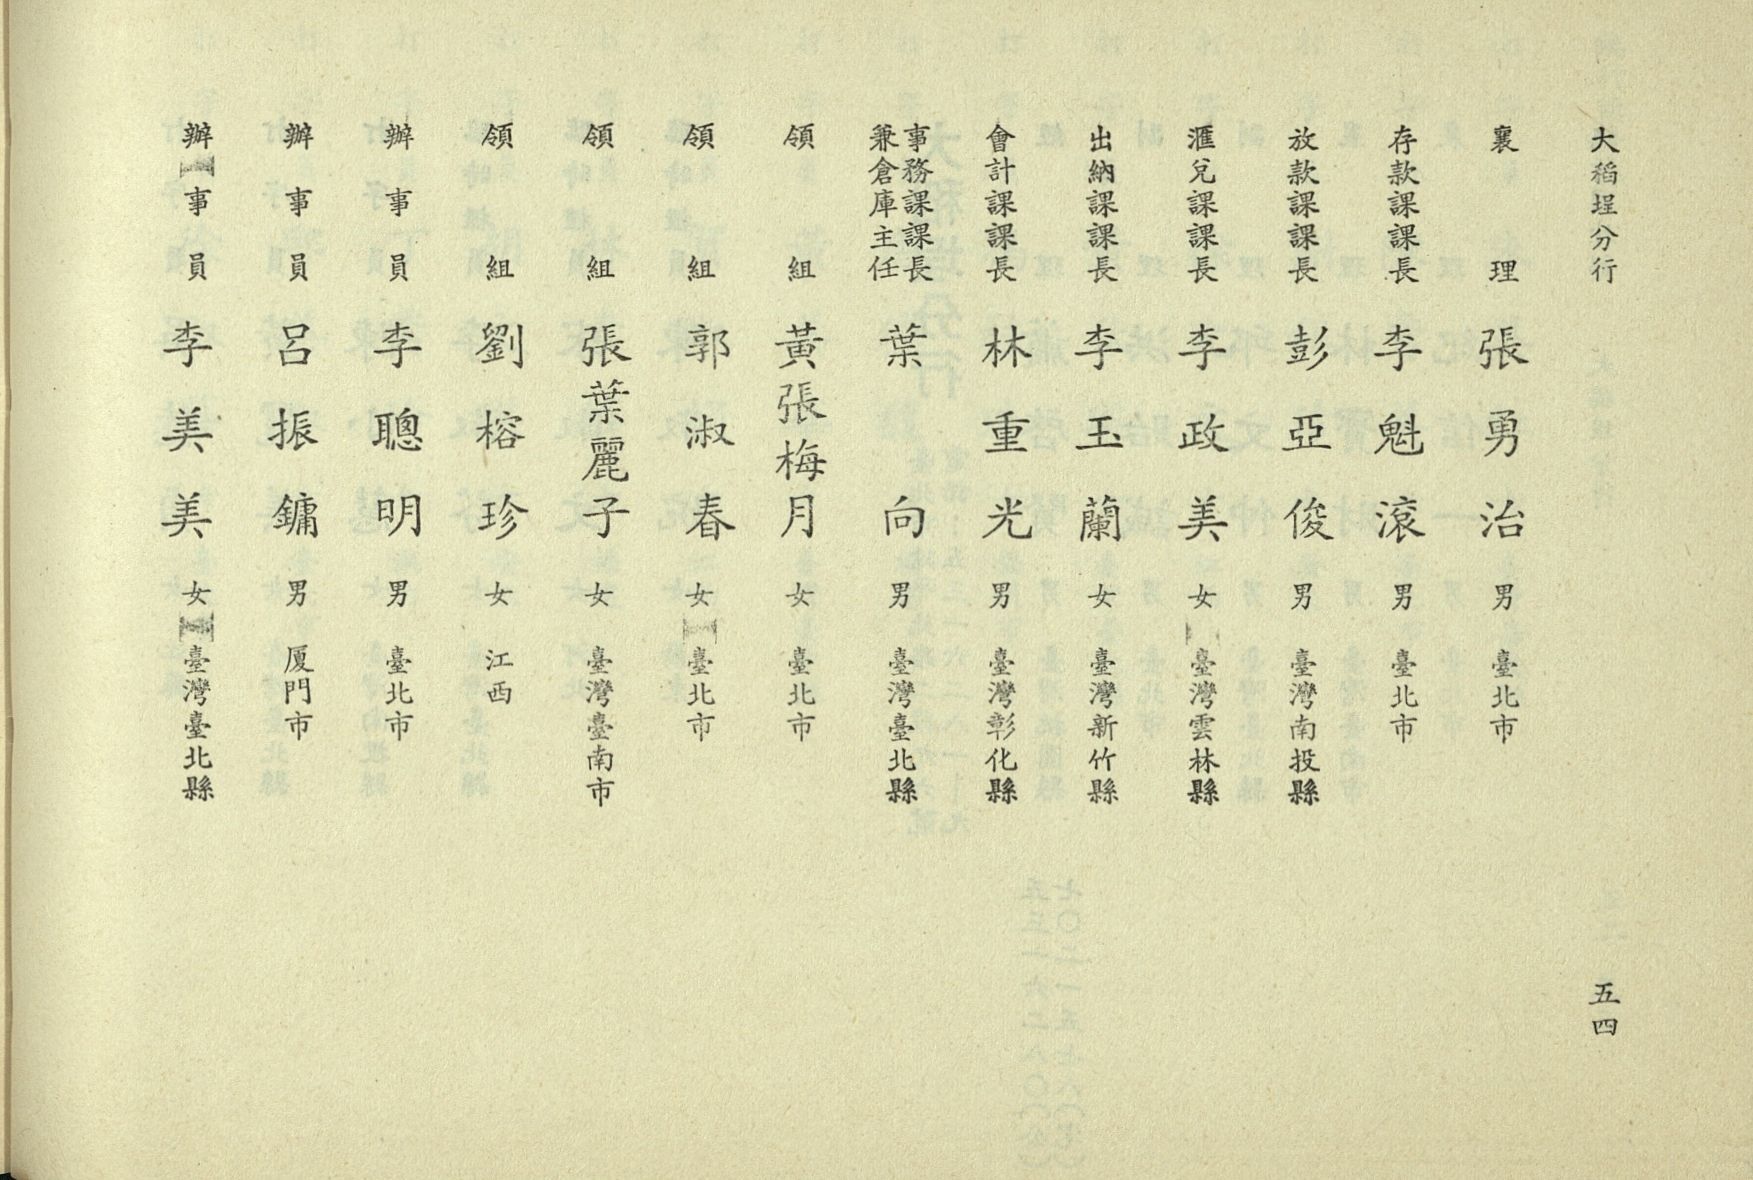 大稻埕分行　五四
襄理　張勇治　男　臺北市
存款課課長　李魁滾　男　臺北市
放款課課長　彭亞俊　男　臺灣南投縣
滙兌課課長　李政美　女　臺灣雲林縣
出納課課長　李玉蘭　女　臺灣新竹縣
會計課課長　林重光　男　臺灣彰化縣
事務課課長
兼倉庫主任　葉向　男　臺灣臺北縣
領組　黃張梅月　女　臺北市
領組　郭淑春　女　臺北市
領組　張葉麗子　女　臺灣臺南市
領組　劉榕珍　女　江西
辦事員　李聰明　男　臺北市
辦事員　呂振鏞　男　厦門市
辦事員　李美美　女　臺灣臺北縣